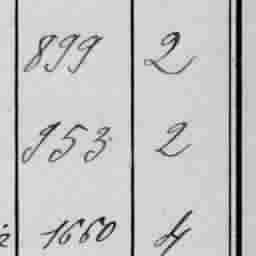 899 2
953 2
1660 4